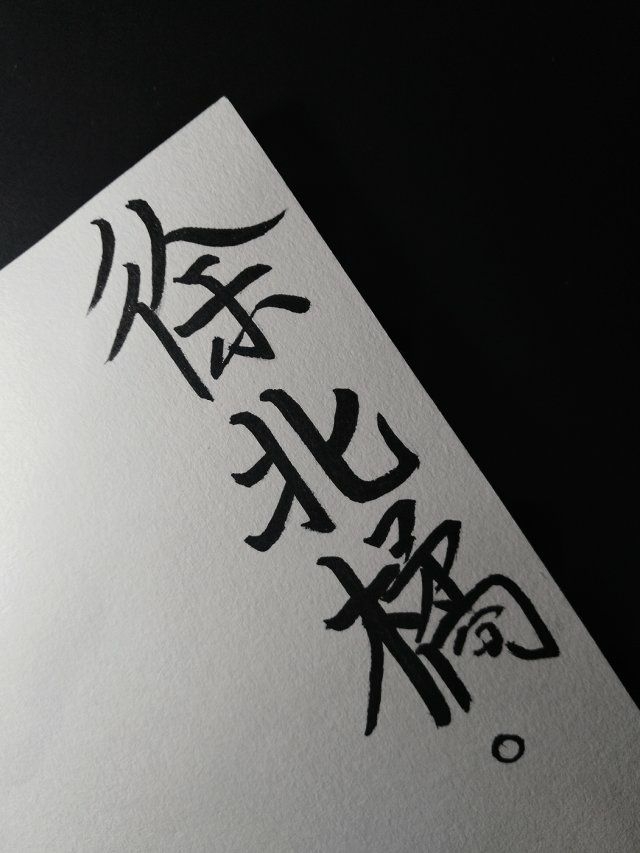 徐北橋。